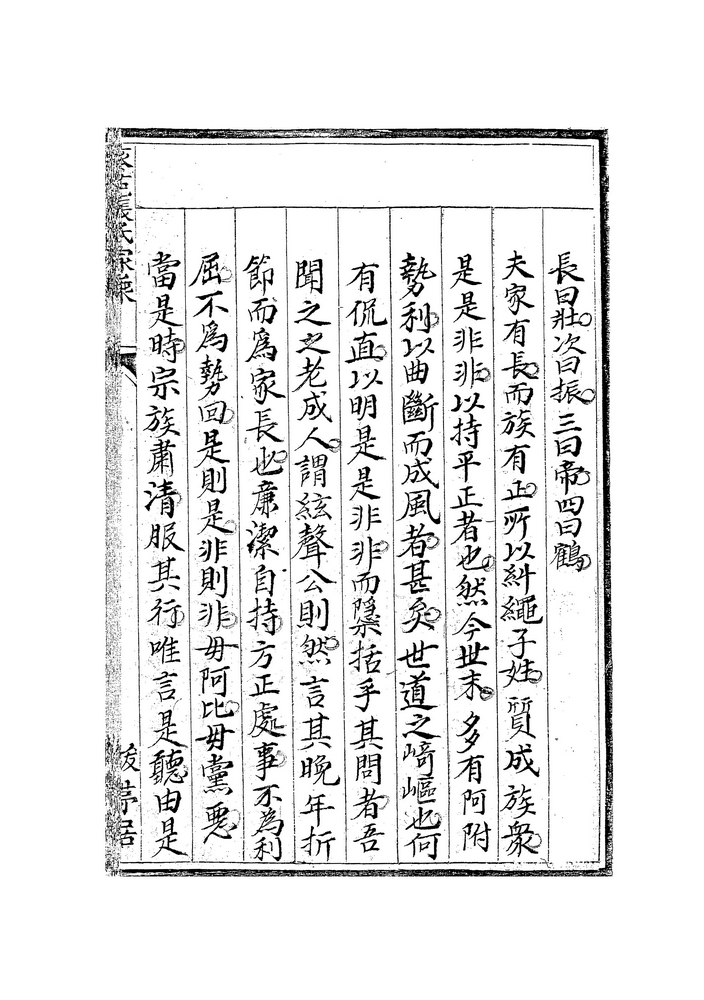 長曰壯次曰振三曰帝四曰鶴
夫家有長而族有正所以糾繩子姓質成族衆
是是非非以持平正者也然今世末多有阿附
勢利以曲斷而成風者甚矣世道之﨑嶇也何
有侃直以明是是非非而隱括乎其問者吾
聞之之老成人謂絃聲公則然言其晩年折
節而爲家長也亷潔自持方正處事不為利
屈不爲勢回是則是非則非毋阿比毋黨惡
當是時宗族肅清服其行唯言是聽由是
張氏家乘
亭居